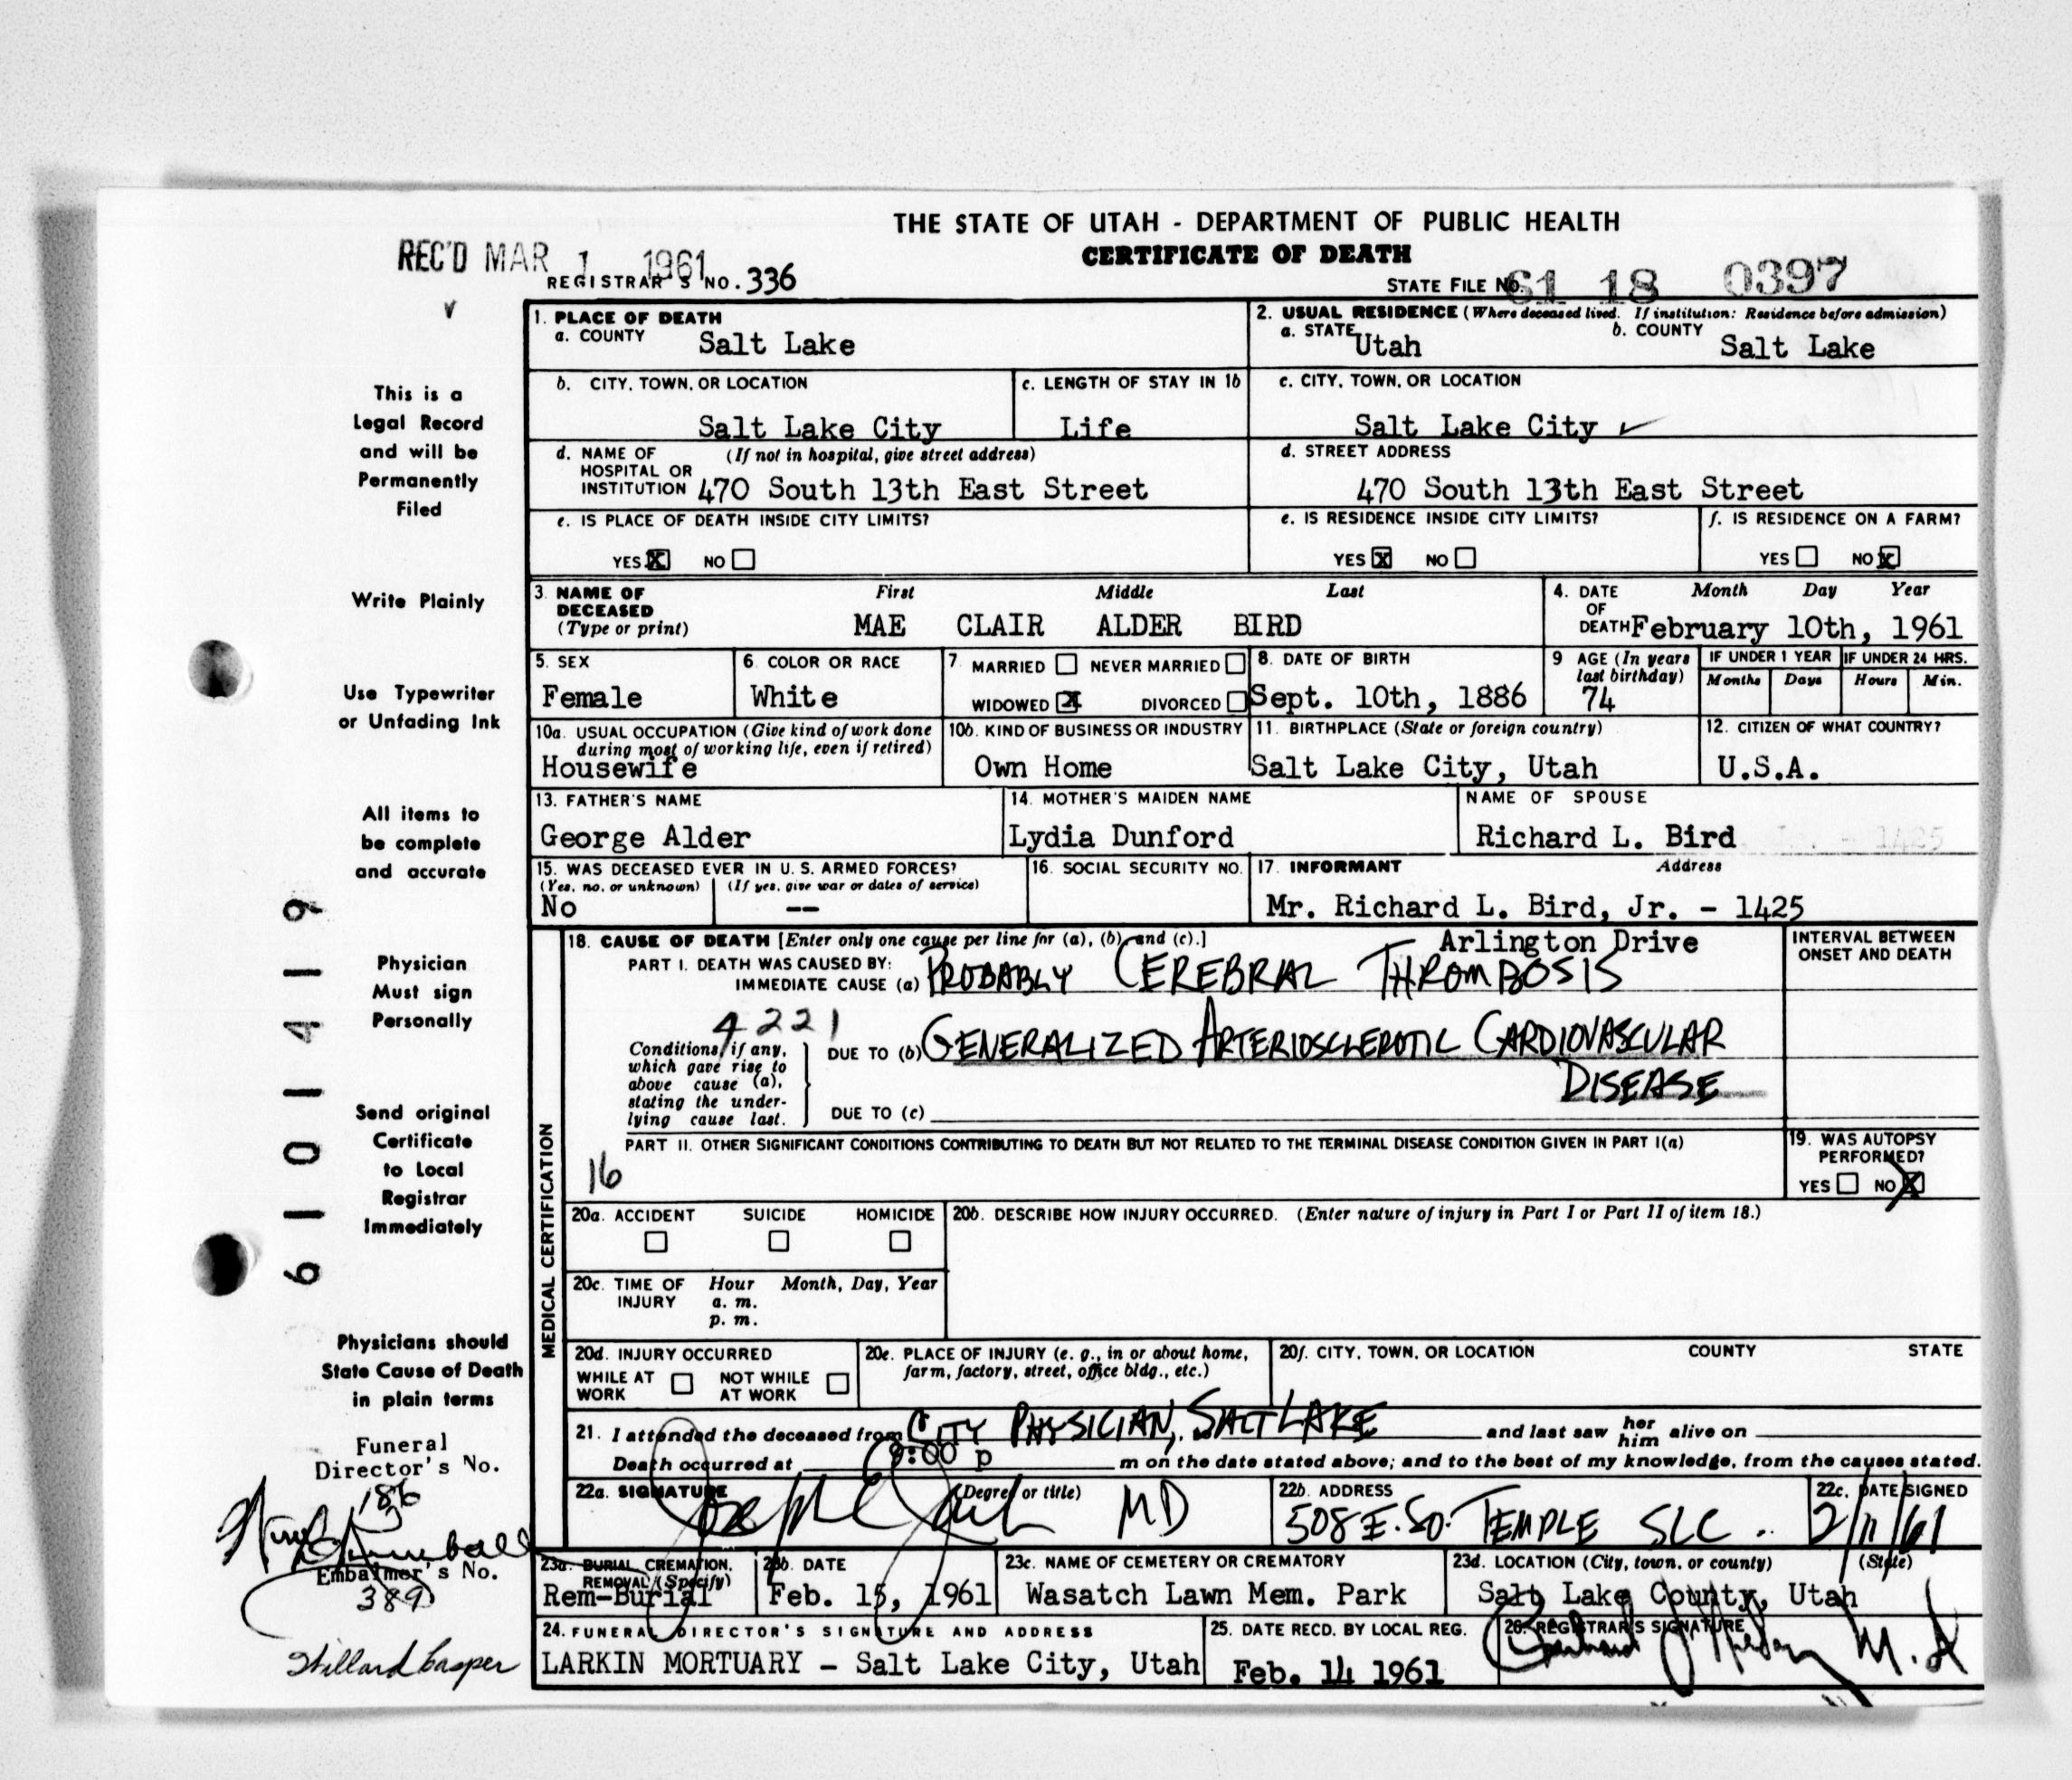 THE STATE OF UTAH - DEPARTMENT OF PUBLIC HEALTH
CERTIFICATE OF DEATH
REC'D MAR 1 1961
REGISTRAR'S NO. 336
STATE FILE NO. 61 18 0397
This is a
Legal Record
and will be
Permanently
Filed
Write Plainly
Use Typewriter
or Unfading Ink
All items to
be complete
and accurate
Physician
Must sign
Personally
Send original
Certificate
to Local
Registrar
Immediately
Physicians should
State Cause of Death
in plain terms
Funeral
Director's No.
186
Embalmer's No.
389
Willard Casper
6 1 0 1 4 1 9
1. PLACE OF DEATH
a. COUNTY Salt Lake
2. USUAL RESIDENCE (Where deceased lived. If institution: Residence before admission)
a. STATE Utah b. COUNTY Salt Lake
b. CITY, TOWN, OR LOCATION Salt Lake City
c. LENGTH OF STAY IN 1b Life
c. CITY, TOWN, OR LOCATION Salt Lake City
d. NAME OF (If not in hospital, give street address)
HOSPITAL OR
INSTITUTION 470 South 13th East Street
d. STREET ADDRESS
470 South 13th East Street
e. IS PLACE OF DEATH INSIDE CITY LIMITS?
YES X NO
e. IS RESIDENCE INSIDE CITY LIMITS?
YES X NO
f. IS RESIDENCE ON A FARM?
YES NO X
3. NAME OF DECEASED (Type or print) First Middle Last
MAE CLAIR ALDER BIRD
4. DATE OF DEATH Month Day Year
February 10th, 1961
5. SEX
Female
6. COLOR OR RACE
White
7. MARRIED NEVER MARRIED
WIDOWED X DIVORCED
8. DATE OF BIRTH
Sept. 10th, 1886
9 AGE (In years last birthday)
74
IF UNDER 1 YEAR
Months Days
IF UNDER 24 HRS.
Hours Min.
10a. USUAL OCCUPATION (Give kind of work done
during most of working life, even if retired)
Housewife
10b. KIND OF BUSINESS OR INDUSTRY
Own Home
11. BIRTHPLACE (State or foreign country)
Salt Lake City, Utah
12. CITIZEN OF WHAT COUNTRY?
U.S.A.
13. FATHER'S NAME
George Alder
14. MOTHER'S MAIDEN NAME
Lydia Dunford
NAME OF SPOUSE
Richard L. Bird
15. WAS DECEASED EVER IN U. S. ARMED FORCES?
(Yes, no, or unknown) (If yes, give war or dates of service)
No --
16. SOCIAL SECURITY NO.
17. INFORMANT Address
Mr. Richard L. Bird, Jr. - 1425
Arlington Drive
MEDICAL CERTIFICATION
18. CAUSE OF DEATH [Enter only one cause per line for (a), (b), and (c).]
INTERVAL BETWEEN
ONSET AND DEATH
PART I. DEATH WAS CAUSED BY:
IMMEDIATE CAUSE (a) PROBABLY CEREBRAL THROMBOSIS
4221
Conditions, if any,
which gave rise to
above cause (a),
stating the under-
lying cause last.
DUE TO (b) GENERALIZED ARTERIOSCLEROTIC CARDIOVASCULAR
DISEASE
DUE TO (c)
PART II. OTHER SIGNIFICANT CONDITIONS CONTRIBUTING TO DEATH BUT NOT RELATED TO THE TERMINAL DISEASE CONDITION GIVEN IN PART I(a)
16
19. WAS AUTOPSY
PERFORMED?
YES NO X
20a. ACCIDENT SUICIDE HOMICIDE
20b. DESCRIBE HOW INJURY OCCURRED. (Enter nature of injury in Part I or Part II of item 18.)
20c. TIME OF INJURY Hour Month, Day, Year
a. m.
p. m.
20d. INJURY OCCURRED
WHILE AT WORK NOT WHILE AT WORK
20e. PLACE OF INJURY (e. g., in or about home,
farm, factory, street, office bldg., etc.)
20f. CITY, TOWN, OR LOCATION COUNTY STATE
21. I attended the deceased from CITY PHYSICIAN, SALT LAKE and last saw her him alive on
Death occurred at 8:00 p m on the date stated above; and to the best of my knowledge, from the causes stated.
22a. SIGNATURE (Degree or title)
MD
22b. ADDRESS
508 E. SO. TEMPLE SLC.
22c. DATE SIGNED
2/11/61
23a. BURIAL, CREMATION,
REMOVAL (Specify)
Rem-Burial
23b. DATE
Feb. 15, 1961
23c. NAME OF CEMETERY OR CREMATORY
Wasatch Lawn Mem. Park
23d. LOCATION (City, town, or county) (State)
Salt Lake County, Utah
24. FUNERAL DIRECTOR'S SIGNATURE AND ADDRESS
LARKIN MORTUARY - Salt Lake City, Utah
25. DATE RECD. BY LOCAL REG.
Feb. 14 1961
26. REGISTRAR'S SIGNATURE
M.D